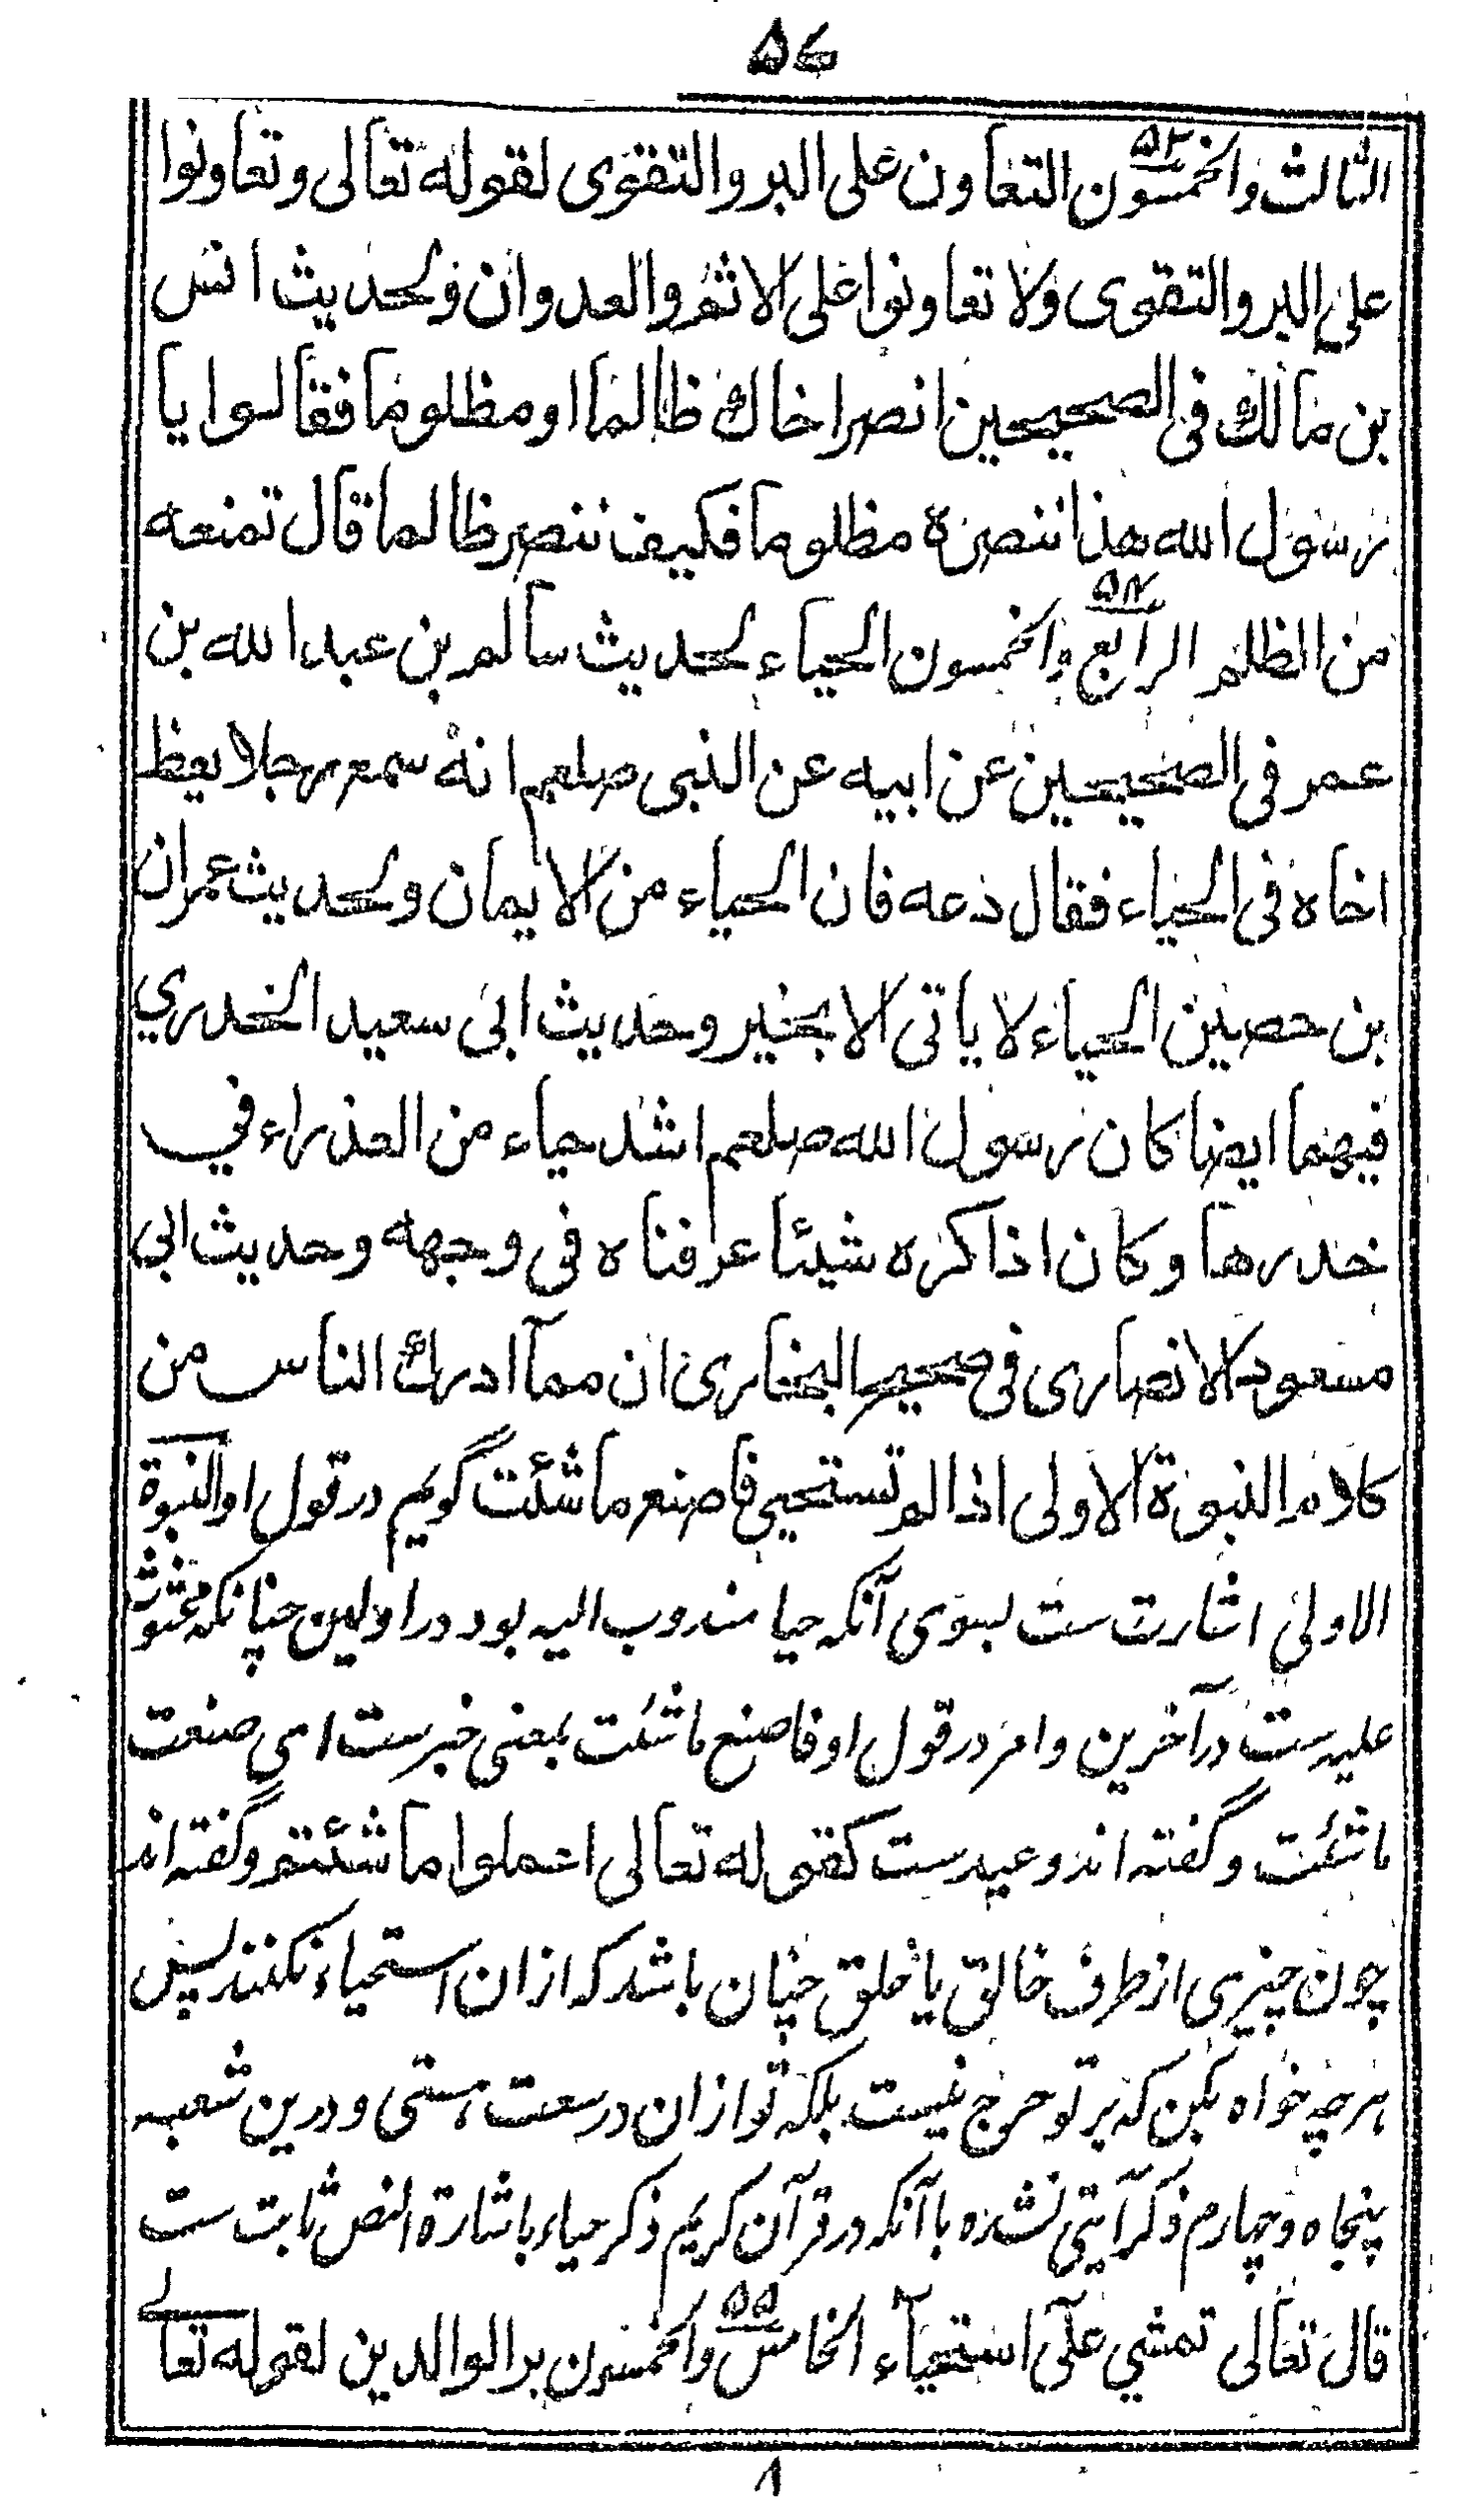 ۵۷
۵۳
الثالث والخمسون التعاون على البر والتقوى لقوله تعالى وتعاونوا
على البر والتقوى ولا تعاونوا على الاثم والعدوان ولحديث انس
بن مالك فى الصحيحين انصر اخاك ظالما او مظلوما فقالوا يا
رسول الله هذا ننصره مظلوما فكيف ننصر ظالما قال تمنعه
۵۴
من الظلم الرابع والخمسون الحياء لحديث سالم بن عبد الله بن
عمر فى الصحيحين عن ابيه عن النبى صلعم انه سمع رجلا يعظ
اخاه فى الحياء فقال دعه فان الحياء من الايمان ولحديث عمران
بن حصين الحياء لا ياتى الا بخير وحديث ابى سعيد الخدري
فيهما ايضا كان رسول الله صلعم اشد حياء من العذراء في
خدرها وكان اذا كره شيئا عرفناه فى وجهه وحديث ابى
مسعود الانصارى فى صحيح البخارى ان مما ادرك الناس من
كلام النبوة الاولى اذا لم تستحيي فاصنع ما شئت گويم در قول او النبوة
الاولى اشارت ست بسوى آنكه حيا مندوب اليه بود در اولين چنانكه محثوث
عليه ست در آخرين وامر در قول او فاصنع ما شئت بمعنى خبرست اى صنعت
ما شئت وگفته اند وعيدست كقوله تعالى اعملوا ما شئتم وگفته اند
چون چيزى از طرف خالق يا خلق چنان باشد كه ازان استحياء نكنند پس
هر چه خواه بكن كه بر تو حرج نيست بلكه تو ازان در سعت هستى ودرين شعبه
پنجاه وچهارم ذكر آيتى نشده با آنكه در قرآن كريم ذكر حياء باشارة النص ثابت ست
۵۵
قال تعالى تمشي على استحياء الخامس والخمسون بر الوالدين لقوله تعالے
۸